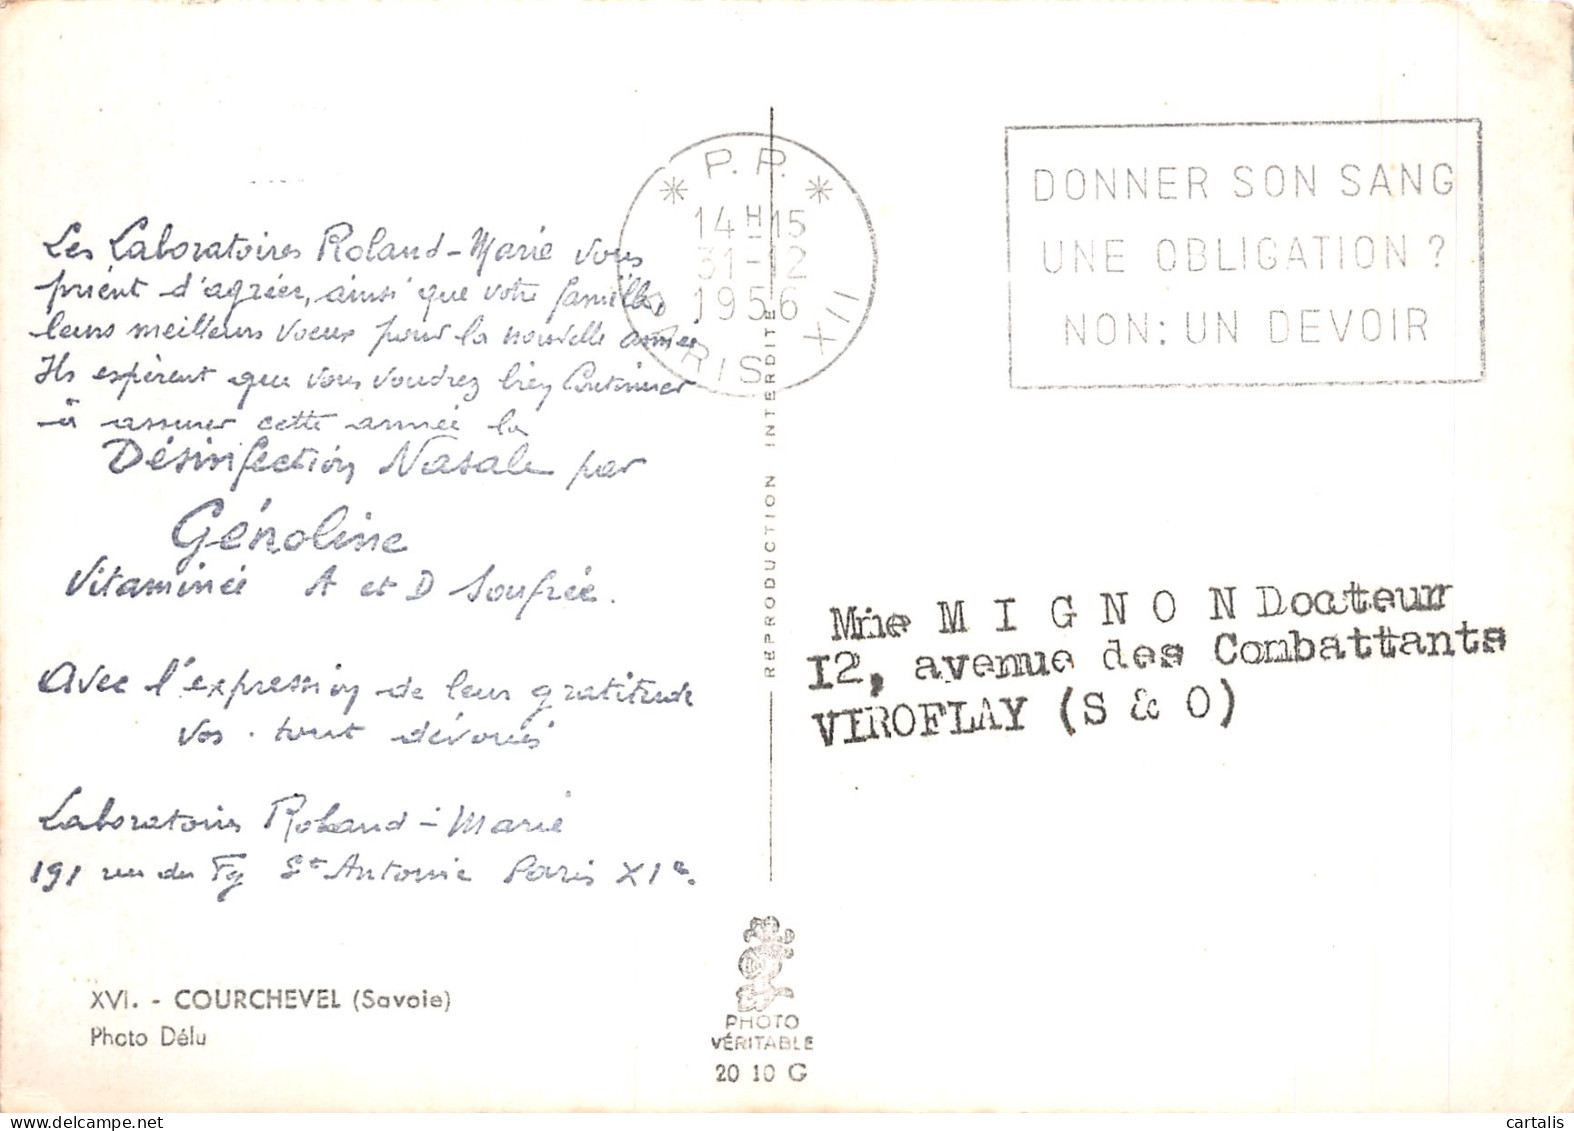 Les Laboratoires Roland-Marie vous
prient d'agréer, ainsi que votre famille,
leurs meilleurs voeux pour la nouvelle année
Ils espèrent que vous voudrez bien Continuer
à assurer cette année la
Désinfection Nasale par
Génoline
Vitaminée A et D Soufrée.
Avec l'expression de leur gratitude
vos tout dévoués
Laboratoires Roland-Marie
191 rue du Fg St Antoine Paris XIe.
XVI. - COURCHEVEL (Savoie)
Photo Délu
* P.P. *
14H15
31-12
1956
PARIS XII
REPRODUCTION INTERDITE
PHOTO
VÉRITABLE
20 10 G
DONNER SON SANG
UNE OBLIGATION ?
NON: UN DEVOIR
Mme M I G N O N Docteur
I2, avenue des Combattants
VIROFLAY (S & O)
cartalis